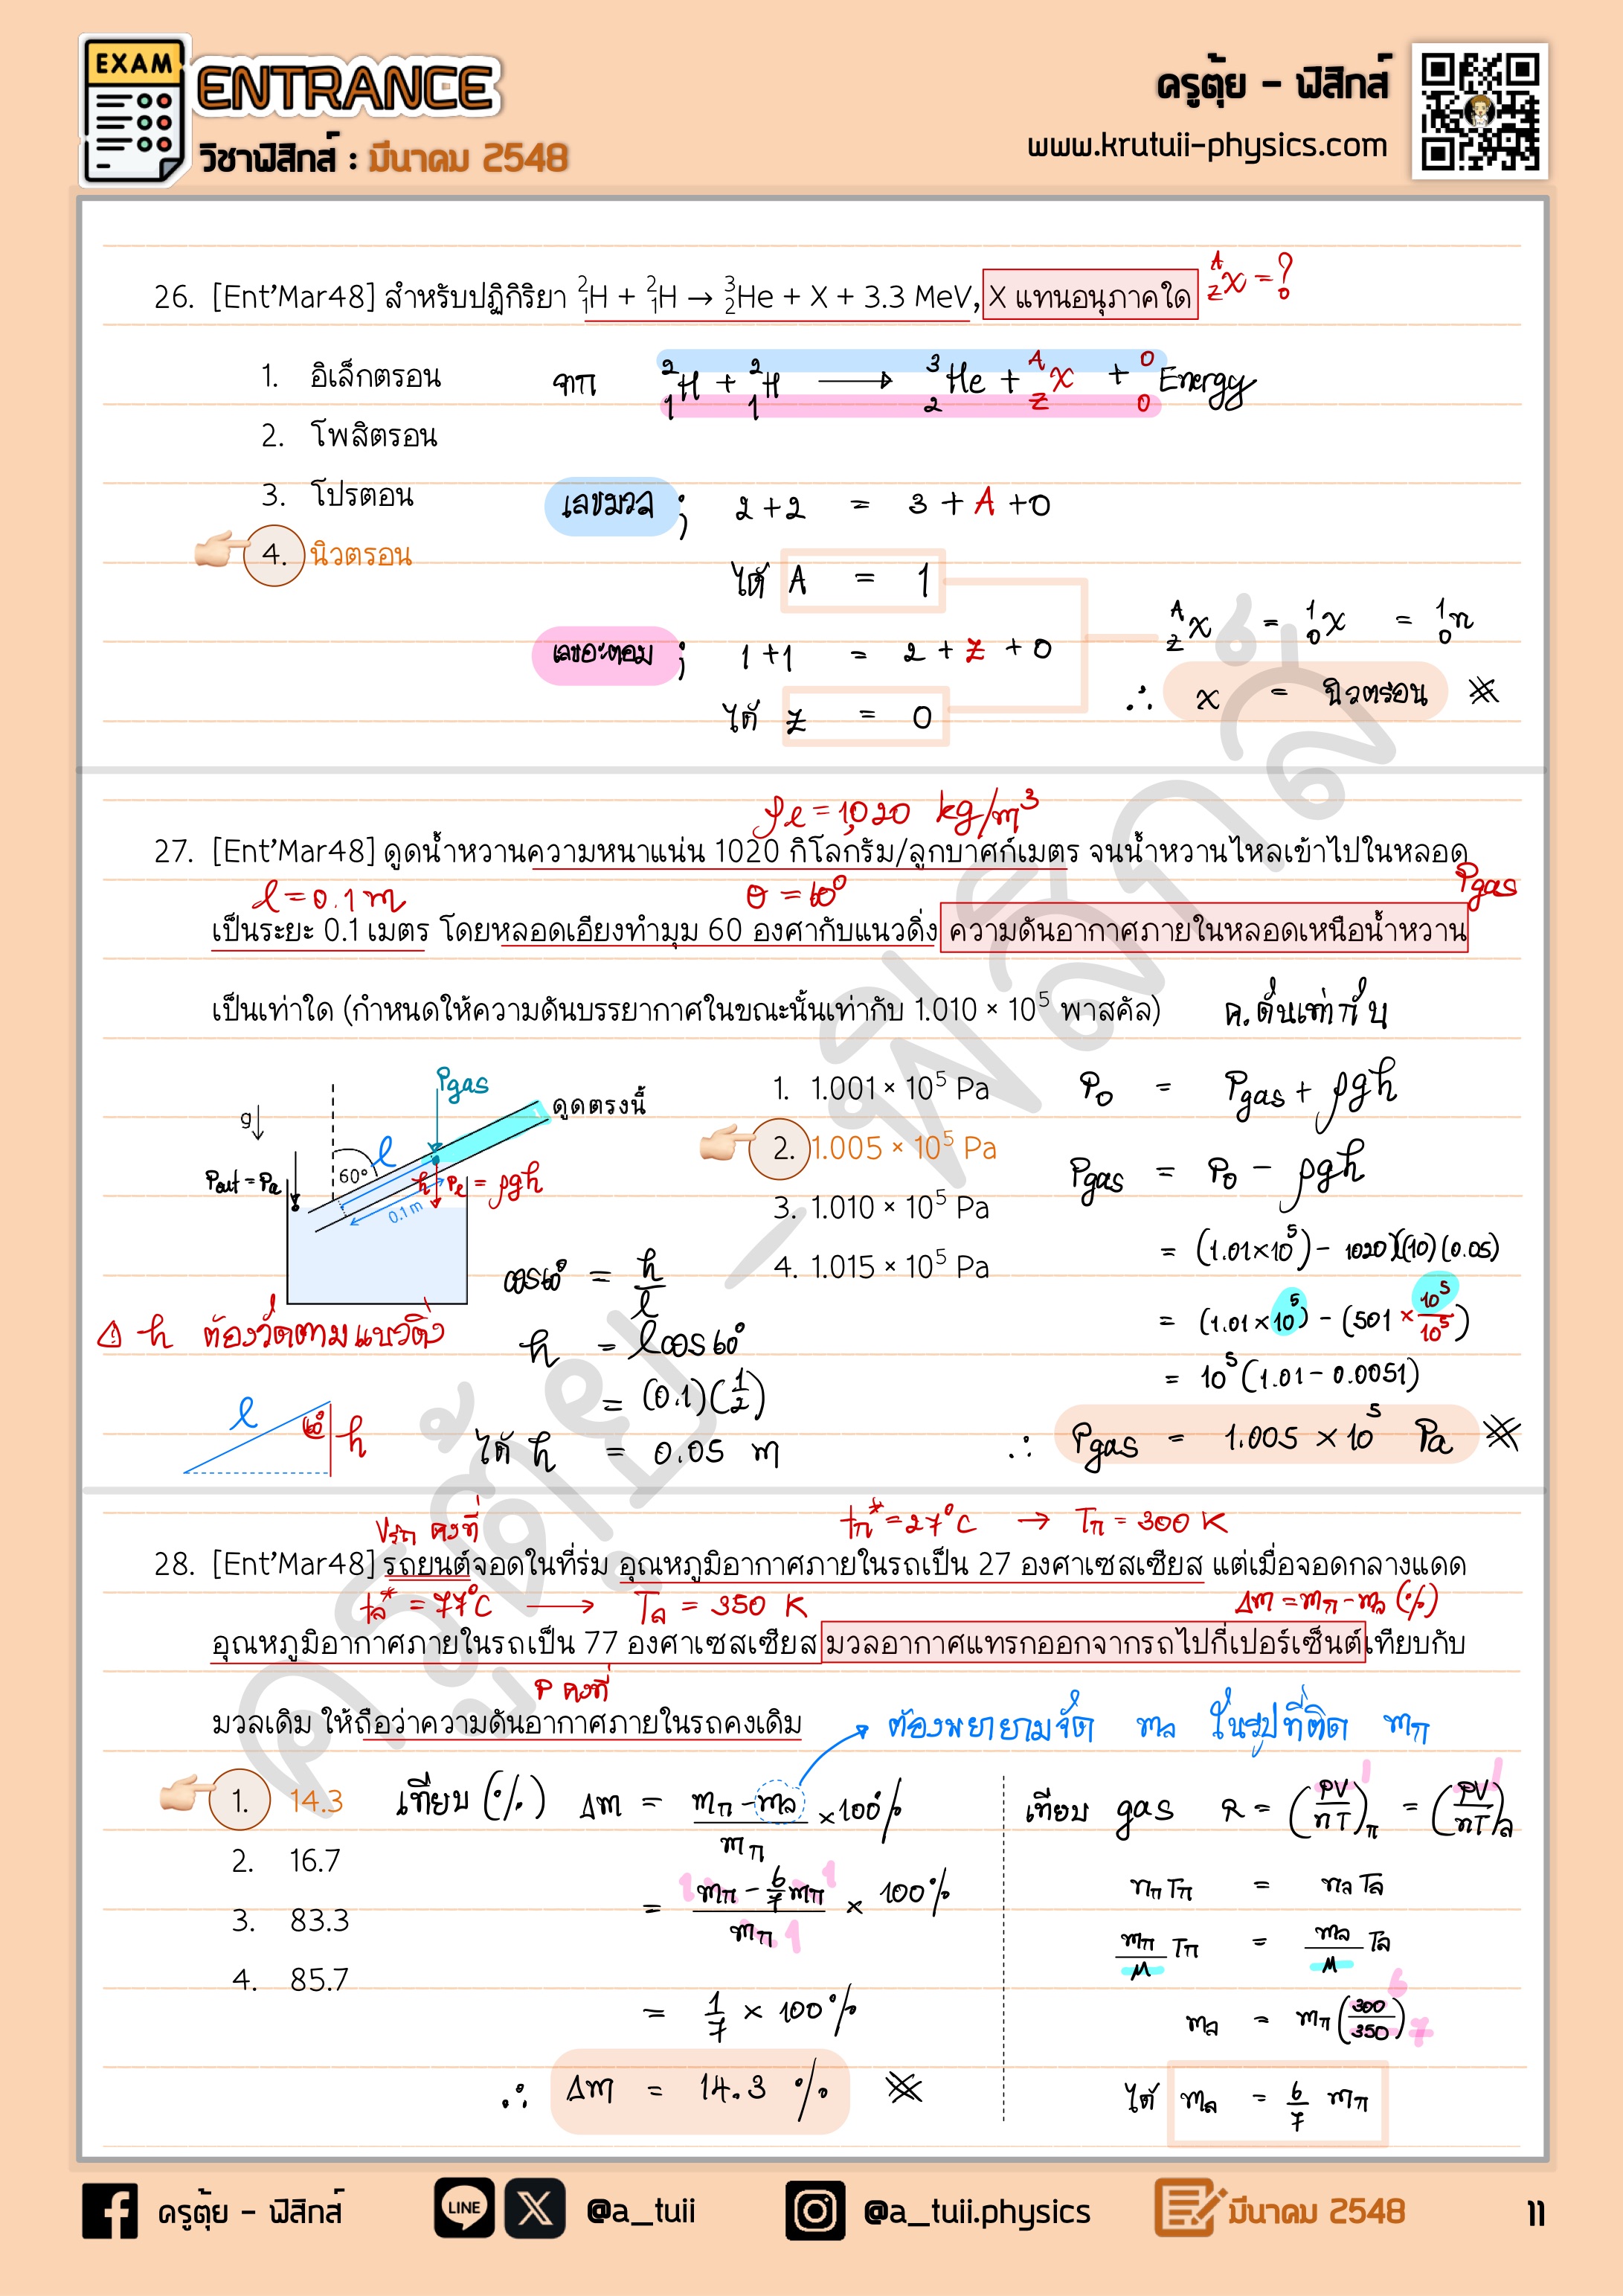 EXAM
ENTRANCE
วิชาฟิสิกส์ : มีนาคม 2548
ครูตุ้ย - ฟิสิกส์
www.krutuii-physics.com
26. [Ent'Mar48] สำหรับปฏิกิริยา ²₁H + ²₁H → ³₂He + X + 3.3 MeV, X แทนอนุภาคใด ᴬ_Z X = ?
1. อิเล็กตรอน
จาก ²₁H + ²₁H → ³₂He + ᴬ_Z X + ⁰₀Energy
2. โพสิตรอน
3. โปรตอน
เลขมวล ; 2+2 = 3 + A + 0
4. นิวตรอน
ได้ A = 1
ᴬ_Z X = ¹₀X = ¹₀n
เลขอะตอม ; 1+1 = 2 + Z + 0
∴ X = นิวตรอน
ได้ Z = 0
ρℓ = 1,020 kg/m³
27. [Ent'Mar48] ดูดน้ำหวานความหนาแน่น 1020 กิโลกรัม/ลูกบาศก์เมตร จนน้ำหวานไหลเข้าไปในหลอด
ℓ = 0.1 m θ = 60° Pgas
เป็นระยะ 0.1 เมตร โดยหลอดเอียงทำมุม 60 องศากับแนวดิ่ง ความดันอากาศภายในหลอดเหนือน้ำหวาน
เป็นเท่าใด (กำหนดให้ความดันบรรยากาศในขณะนั้นเท่ากับ 1.010 × 10⁵ พาสคัล) ค.ดันเท่ากัน
Pgas
ดูดตรงนี้
g
60°
ℓ
Pout = Pa
h Pℓ = ρgh
0.1 m
1. 1.001 × 10⁵ Pa
2. 1.005 × 10⁵ Pa
3. 1.010 × 10⁵ Pa
4. 1.015 × 10⁵ Pa
P₀ = Pgas + ρgh
Pgas = P₀ - ρgh
= (1.01×10⁵) - 1020)(10)(0.05)
= (1.01×10⁵) - (501 × 10⁵/10⁵)
= 10⁵(1.01 - 0.0051)
∴ Pgas = 1.005 × 10⁵ Pa
cos60° = h/ℓ
h ต้องวัดตามแนวดิ่ง
h = ℓcos60°
= (0.1)(1/2)
ได้ h = 0.05 m
ℓ 60° h
Vรถ คงที่ tก* = 27°C → Tก = 300 K
28. [Ent'Mar48] รถยนต์จอดในที่ร่ม อุณหภูมิอากาศภายในรถเป็น 27 องศาเซสเซียส แต่เมื่อจอดกลางแดด
tล* = 77°C → Tล = 350 K Δm = mก - mล (%)
อุณหภูมิอากาศภายในรถเป็น 77 องศาเซสเซียส มวลอากาศแทรกออกจากรถไปกี่เปอร์เซ็นต์เทียบกับ
P คงที่
มวลเดิม ให้ถือว่าความดันอากาศภายในรถคงเดิม
ต้องพยายามจัด mล ในรูปที่ติด mก
1. 14.3
2. 16.7
3. 83.3
4. 85.7
เทียบ (%) Δm = (mก - mล)/mก × 100%
= (mก - 6/7 mก)/mก × 100%
1 1 1
= 1/7 × 100%
∴ Δm = 14.3 %
เทียบ gas R = (PV/nT)ก = (PV/nT)ล
1 1
nกTก = nลTล
mก/M Tก = mล/M Tล
mล = mก(300/350) 6 7
ได้ mล = 6/7 mก
ครูตุ้ย - ฟิสิกส์
ครูตุ้ย - ฟิสิกส์
LINE
X
@a_tuii
@a_tuii.physics
มีนาคม 2548
11